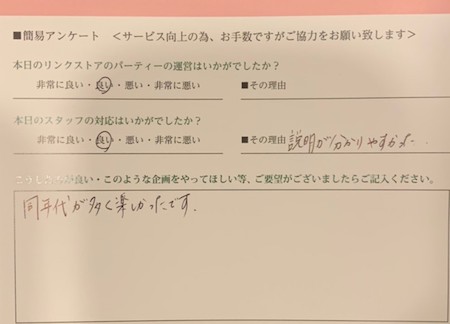 ■簡易アンケート ＜サービス向上の為、お手数ですがご協力をお願い致します＞
本日のリンクストアのパーティーの運営はいかがでしたか？
非常に良い・良い・悪い・非常に悪い ■その理由
本日のスタッフの対応はいかがでしたか？
非常に良い・良い・悪い・非常に悪い ■その理由 説明が分かりやすかった.
が良い・このような企画をやってほしい等、ご要望がございましたらご記入ください。
同年代が多く楽しかったです.